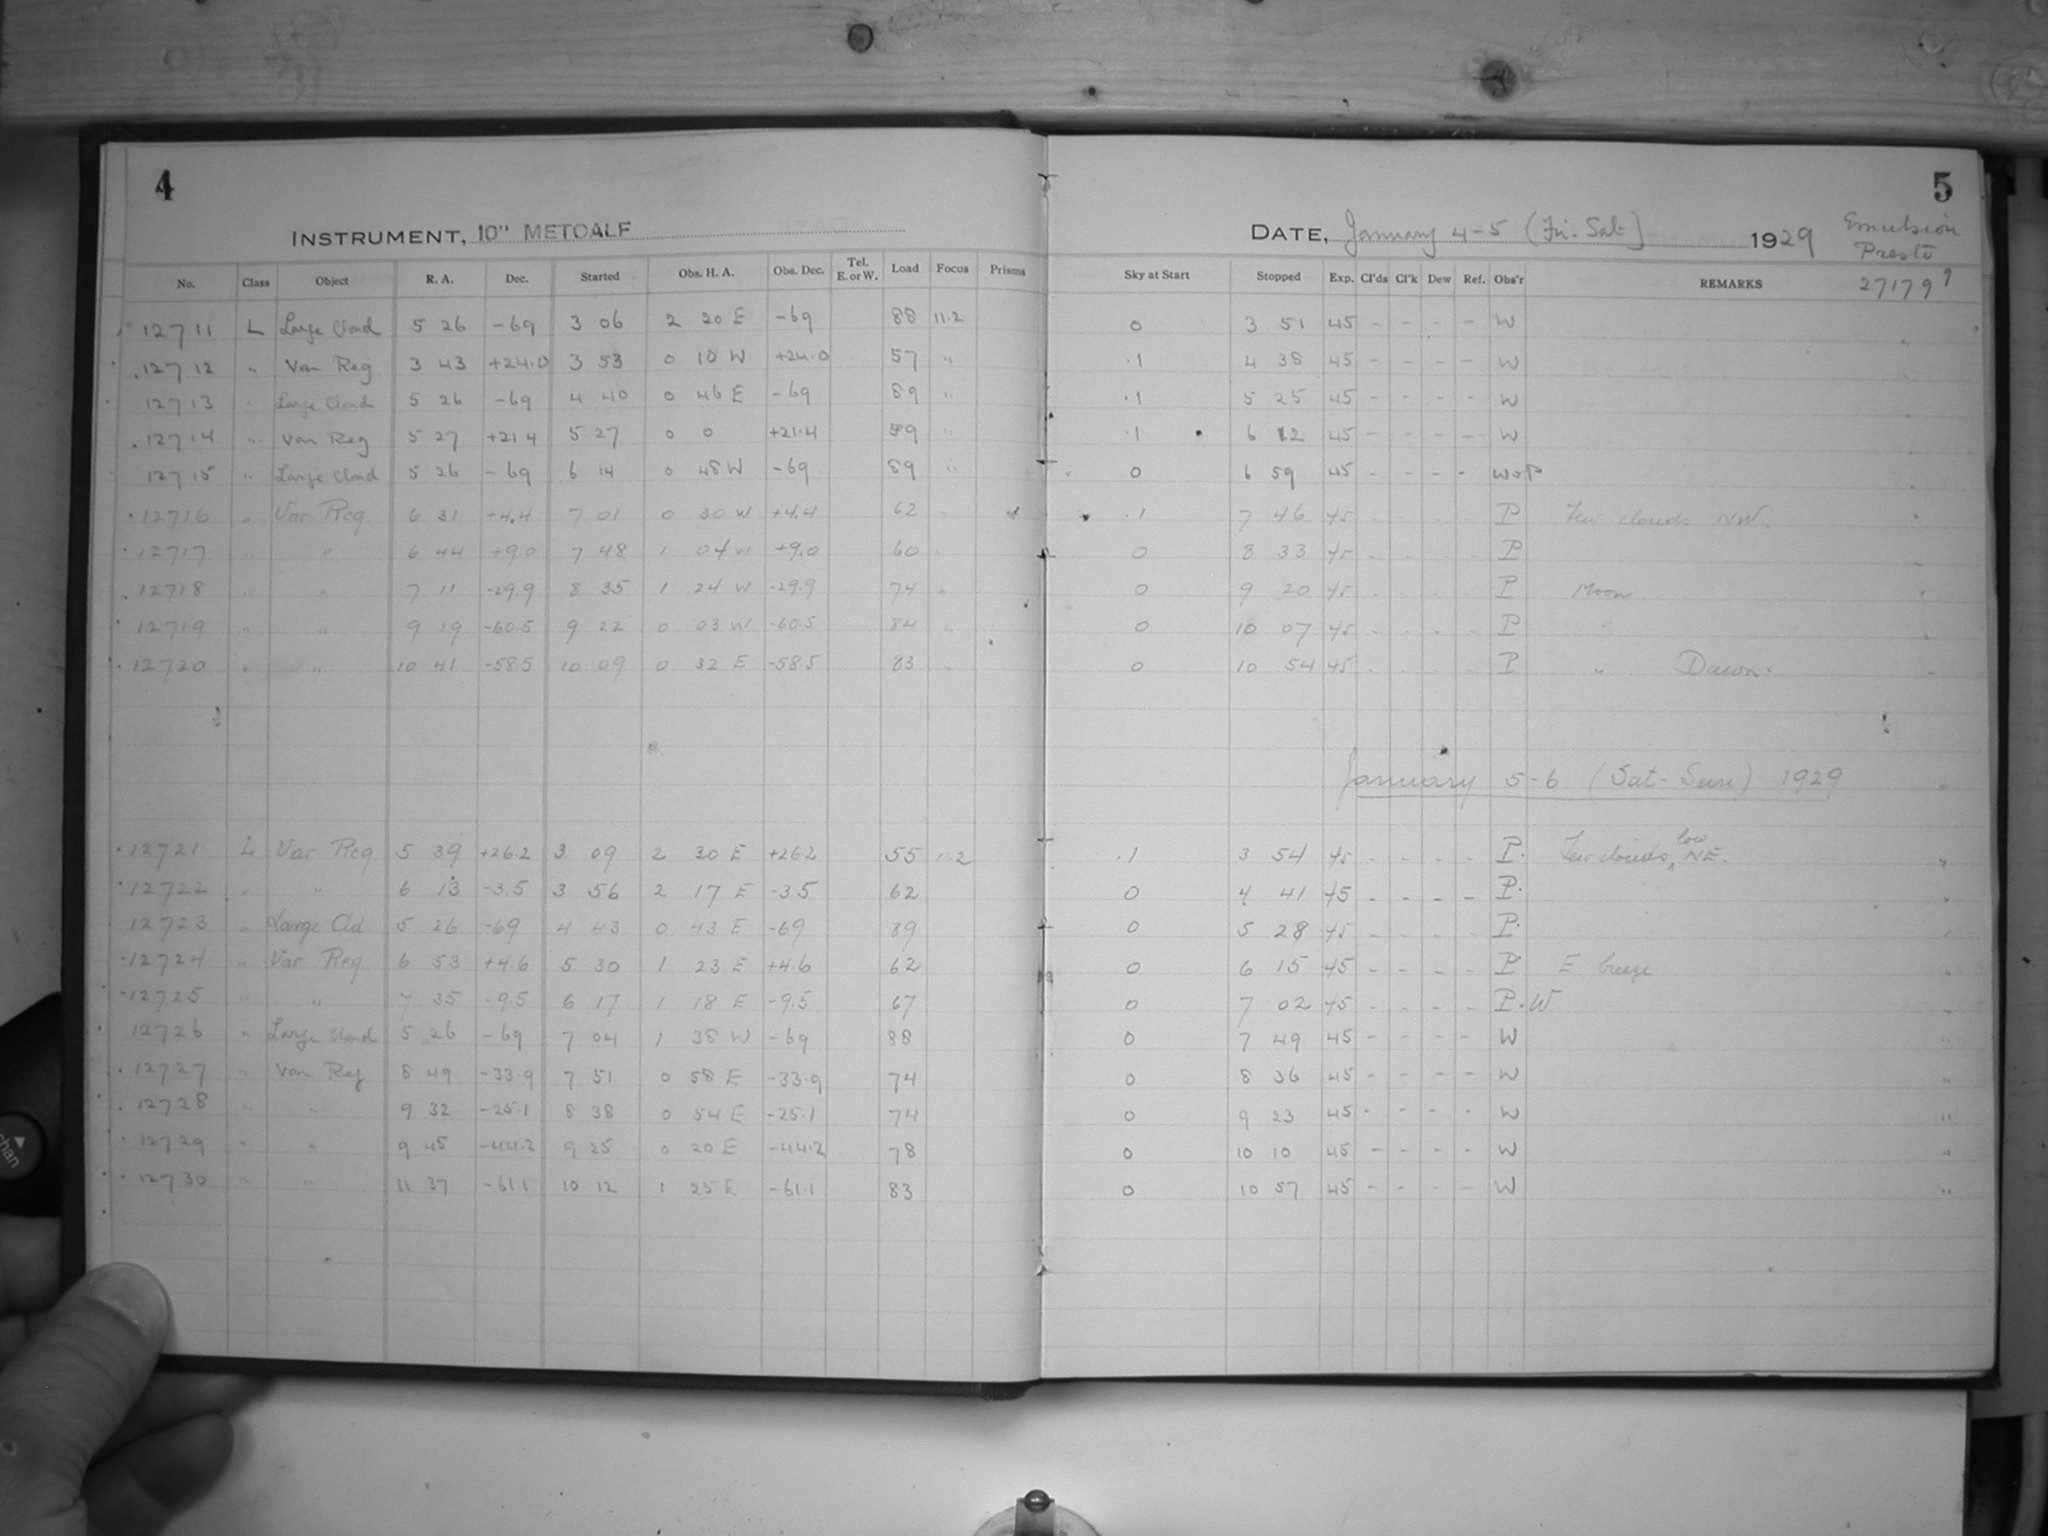 4
5
INSTRUMENT, 10" METCALF
DATE, January 4-5 (Fri-Sat) 1929 Emulsion
Presto
27179
No. Class Object R. A. Dec. Started Obs. H. A. Obs. Dec. Tel. E. or W. Load Focus Prisms Sky at Start Stopped Exp. Cl'ds Cl'k Dew Ref. Obs'r REMARKS
12711 L Large Cloud 5 26 -69 3 06 2 20 E -69 88 11.2 0 3 51 45 - - - - W
12712 " Var Reg 3 43 +24.0 3 53 0 10 W +24.0 57 " .1 4 38 45 - - - - W
12713 " Large Cloud 5 26 -69 4 40 0 46 E -69 89 " .1 5 25 45 - - - - W
12714 " Var Reg 5 27 +21.4 5 27 0 0 +21.4 59 " .1 6 12 45 - - - - W
12715 " Large Cloud 5 26 -69 6 14 0 48 W -69 89 " 0 6 59 45 - - - - W+P
12716 " Var Reg 6 31 +4.4 7 01 0 30 W +4.4 62 " .1 7 46 45 - - - - P Few clouds NW.
12717 " " 6 44 +9.0 7 48 1 04 W +9.0 60 " 0 8 33 45 - - - - P
12718 " " 7 11 -29.9 8 35 1 24 W -29.9 74 " 0 9 20 45 - - - - P Moon
12719 " " 9 19 -60.5 9 22 0 03 W -60.5 84 " 0 10 07 45 - - - - P "
12720 " " 10 41 -58.5 10 09 0 32 E -58.5 83 " 0 10 54 45 - - - - P " Dawn.
January 5-6 (Sat-Sun) 1929
12721 L Var Reg 5 39 +26.2 3 09 2 30 E +26.2 55 11.2 .1 3 54 45 - - - - P. Few clouds, low NE.
12722 " " 6 13 -3.5 3 56 2 17 E -3.5 62 0 4 41 45 - - - - P.
12723 " Large Cld 5 26 -69 4 43 0 43 E -69 89 0 5 28 45 - - - - P.
12724 " Var Reg 6 53 +4.6 5 30 1 23 E +4.6 62 0 6 15 45 - - - - P. E breeze
12725 " " 7 35 -9.5 6 17 1 18 E -9.5 67 0 7 02 45 - - - - P.W
12726 " Large Cloud 5 26 -69 7 04 1 38 W -69 88 0 7 49 45 - - - - W
12727 " Var Reg 8 49 -33.9 7 51 0 58 E -33.9 74 0 8 36 45 - - - - W
12728 " " 9 32 -25.1 8 38 0 54 E -25.1 74 0 9 23 45 - - - - W
12729 " " 9 45 -44.2 9 25 0 20 E -44.2 78 0 10 10 45 - - - - W
12730 " " 11 37 -61.1 10 12 1 25 E -61.1 83 0 10 57 45 - - - - W